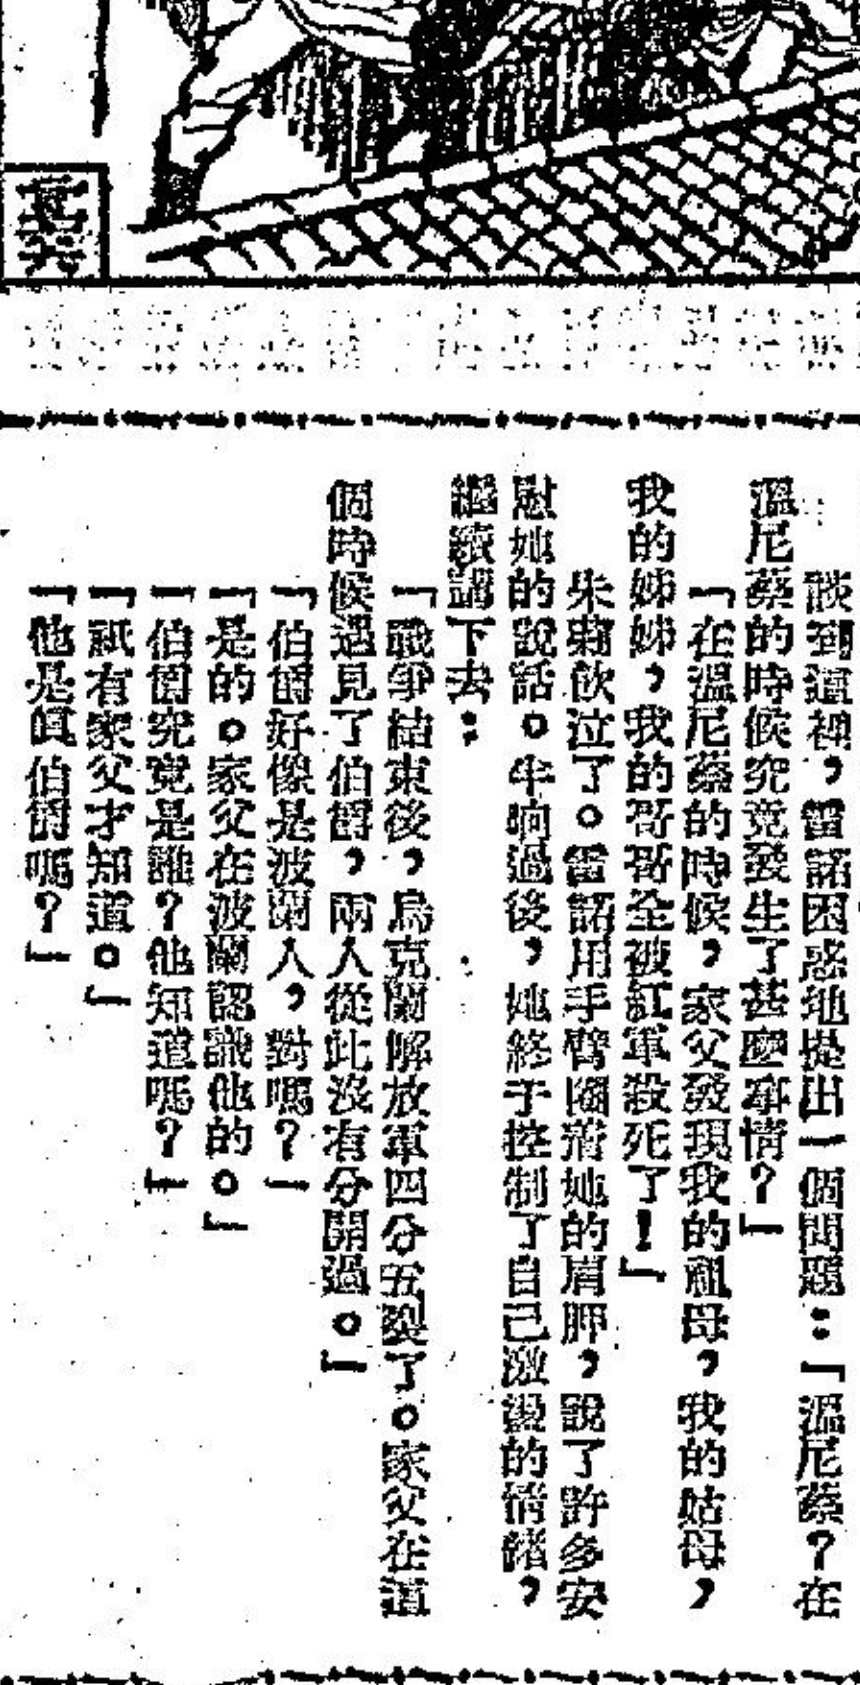 談到這裡，雷諾困惑地提出一個問題：「溫尼蔡？在
溫尼蔡的時候究竟發生了甚麼事情？」
「在溫尼蔡的時候，家父發現我的祖母，我的姑母，
我的姊姊，我的哥哥全被紅軍殺死了！」
朱莉飲泣了。雷諾用手臂圈着她的肩胛，說了許多安
慰她的說話。半晌過後，她終于控制了自己激漫的情緒，
繼續講下去：
「戰爭結束後，烏克蘭解放軍四分五裂了。家父在這
個時候遇見了伯爵，兩人從此沒有分開過。」
「伯爵好像是波蘭人，對嗎？」
「是的。家父在波蘭認識他的。」
「伯爵究竟是誰？他知道嗎？」
「祇有家父才知道。」
「他是眞伯爵嗎？」